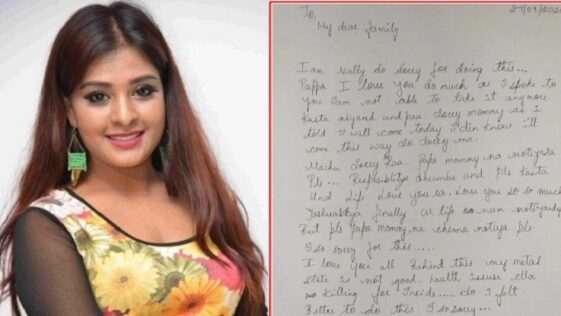 To,
27/09/202
My dear family
I am really so sorry for doing this...
Pappa I love you so much as I spoke to
you I am not able to take it anymore
Kasta aiyand ppaa. Sorry mommy as i
told I will come today I din know i'll
come this way so Sorry ma.
Machu Sorry kaa. Papa mommy na notiyada
Pls ... Resposiblitye dhumba and pls kasta
Und life Love you ra. Love you so so much
finally life
But pls Papa mommy na chenna notiya pls
I so sorry for this ....
I love you all Behind this my metal
state is not good. health issues ella
Killing for Inside.... So I felt
Better to do this I so sorry...